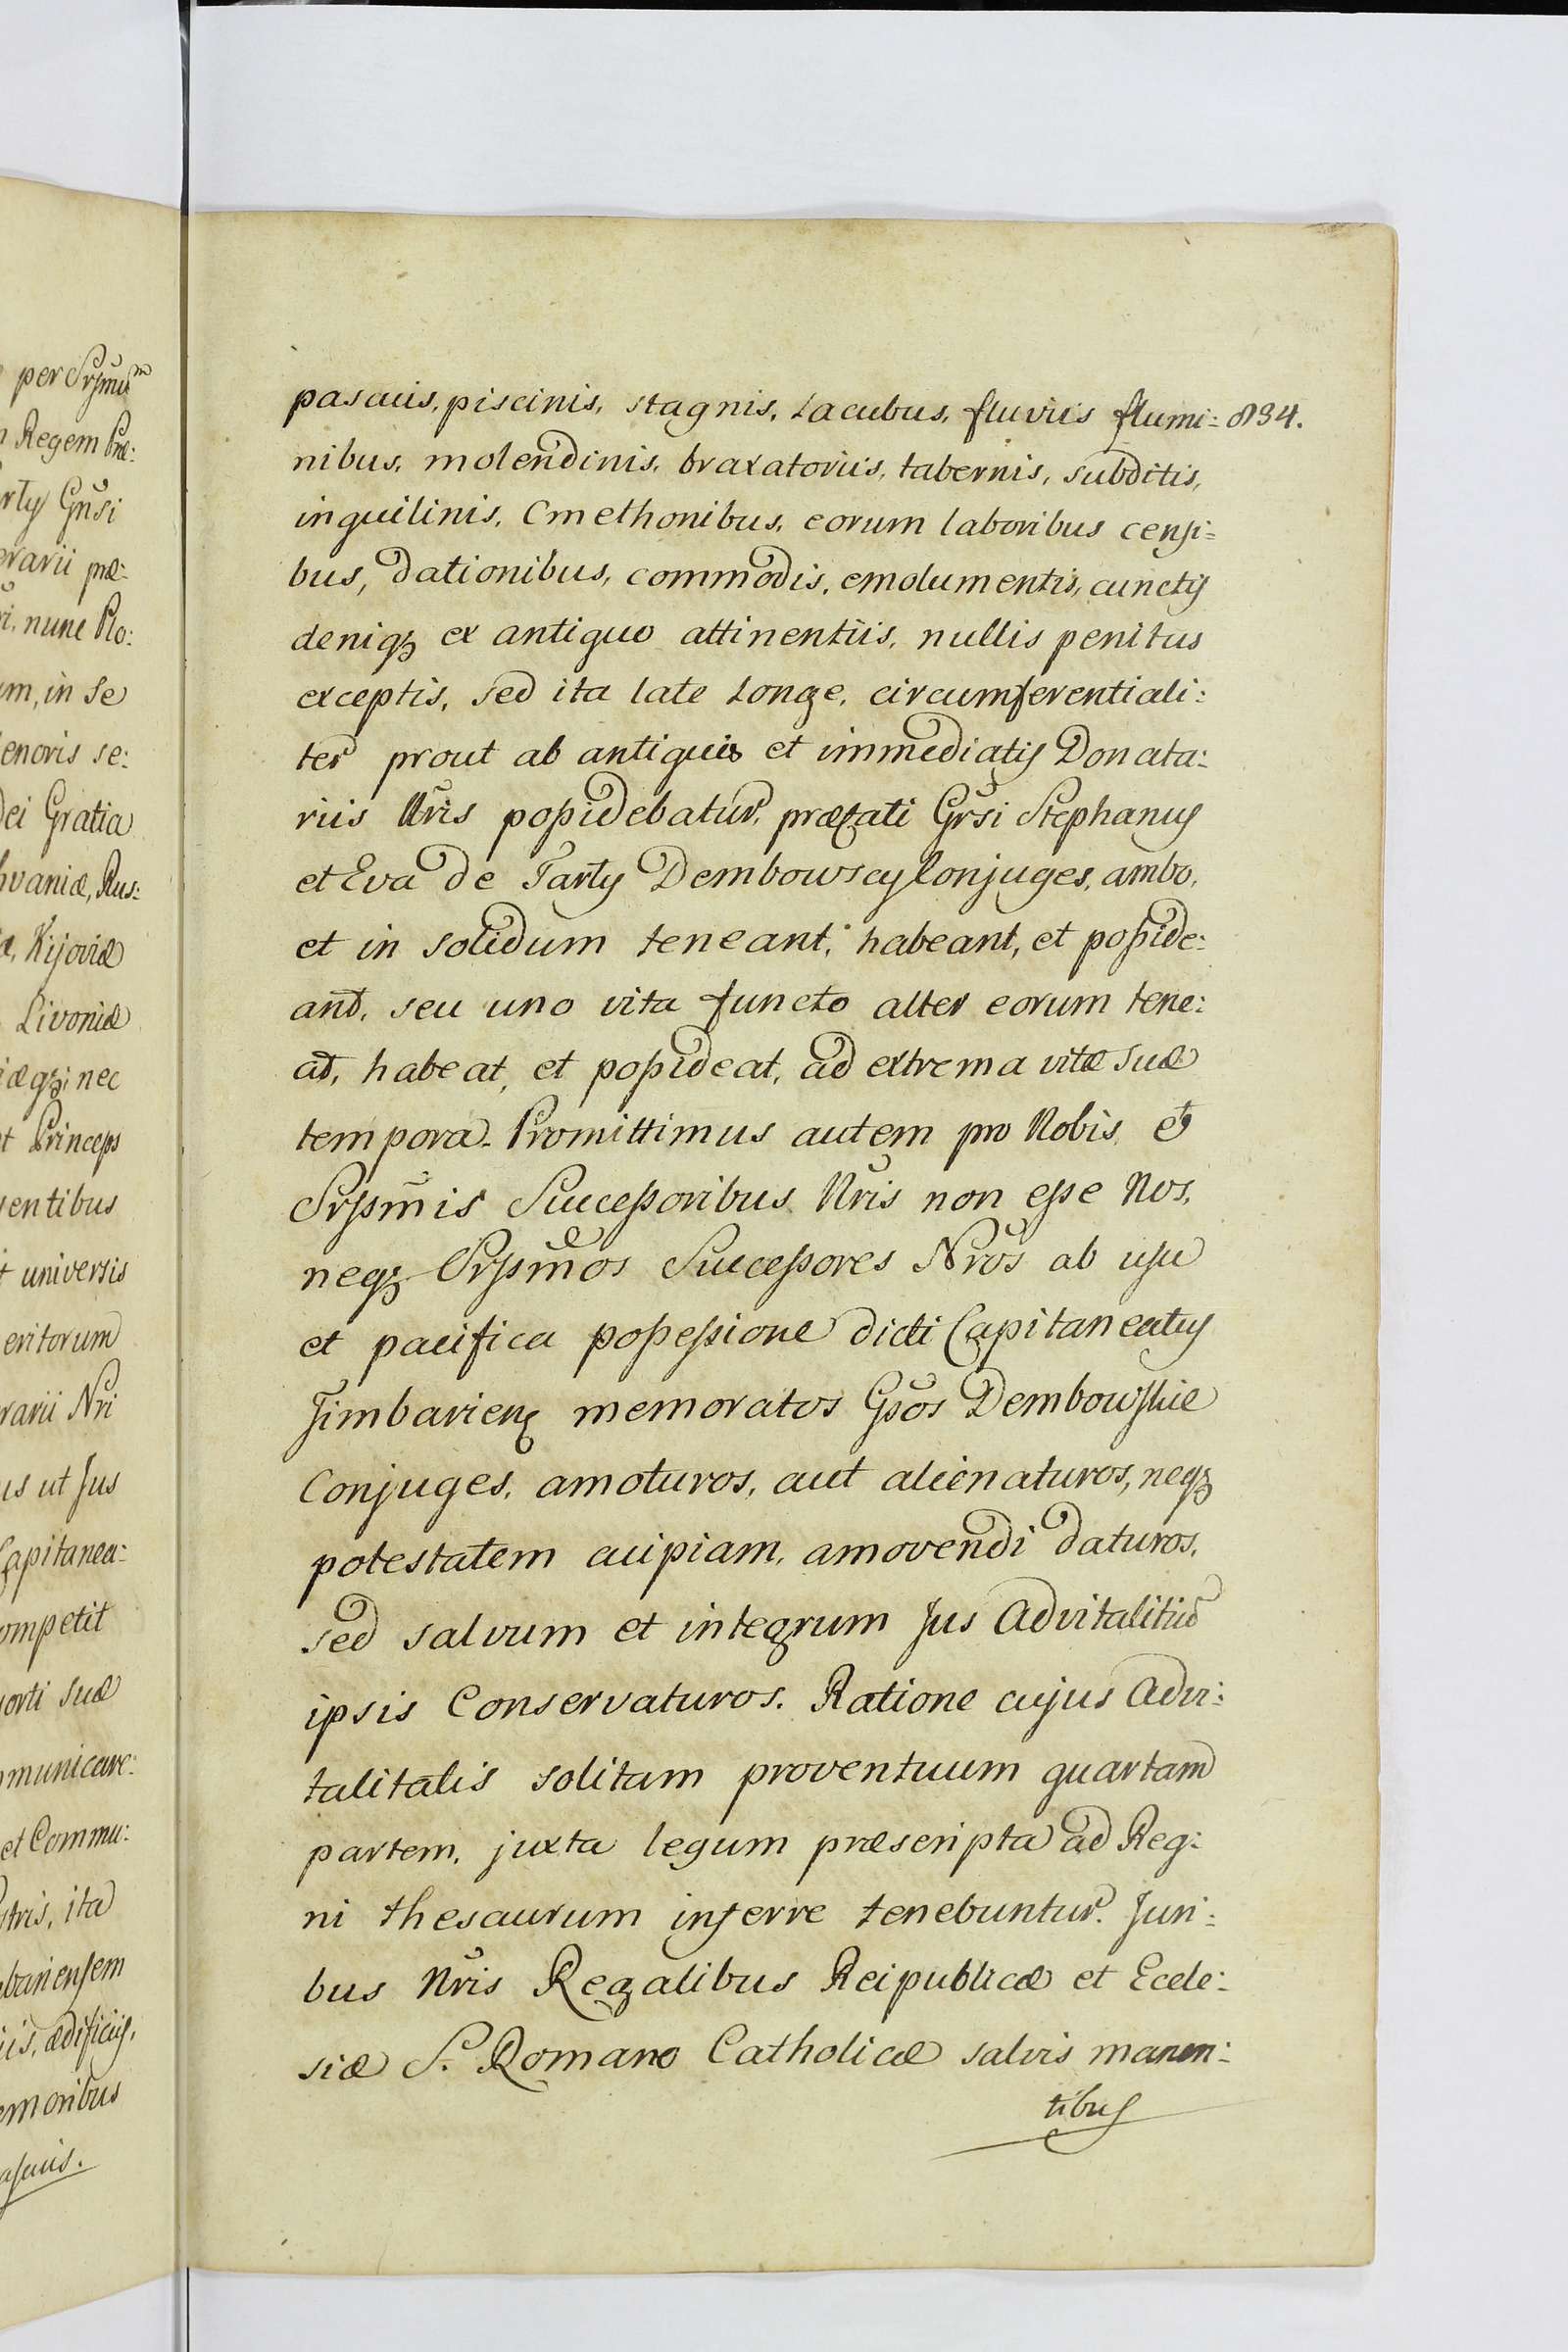 per Srsmū m
Regem Præ:
rty Gn̄si
erarii præ:
nunc Plo:
in se
enoris se:
Dei Gratia
hvaniæ, Rus:
Kijoviæ
Livoniæ
iæqꝫ nec
Princeps
sentibus
universis
eritorum
rarii Nri
us ut Jus
Capitanea:
ompetit
sorti suæ
municare:
et Commu:
stris, ita
bariensem
ædificijs,
emoribus
ascuis.
pascuis, piscinis, stagnis, Lacubus, fluviis flumi: 834.
nibus, molendinis, braxatoriis, tabernis, subditis,
inquilinis, Cmethonibus, eorum laboribus censi=
bus, dationibus, commodis, emolumentis, cunctis
deniqꝫ ex antiquo attinentiis, nullis penitus
exceptis, sed ita late Longe, circumferentiali:
ter prout ab antiquis et immediatis Donata:
riis Nr̄is possidebatur, præfati Gr̄si Stephanus
et Eva de Tarły Dembowscy Conjuges, ambo,
et in solidum teneant, habeant, et posside:
ant, seu uno vita functo alter eorum tene:
at, habeat, et possideat, ad extrema vitæ suæ
tempora. Promittimus autem pro Nobis, et
Srssm̄is Successoribus Nr̄is non esse Nos,
neqꝫ Srssm̄os Successores Nr̄os ab usu
et pacifica possessione dicti Capitaneatus
Jimbarien̄ memoratos Gsōs Dembowskie
Conjuges, amoturos, aut alienaturos, neqꝫ
potestatem cuipiam, amovendi daturos,
sed salvum et integrum Jus Advitalitiū
ipsis Conservaturos. Ratione cujus Advi:
talitatis solitam proventuum quartam
partem, juxta legum præscripta ad Reg:
ni thesaurum inferre tenebuntur. Juri:
bus Nr̄is Regalibus Reipublicæ et Eccle:
siæ S. Romano Catholicæ salvis manen:
tibus